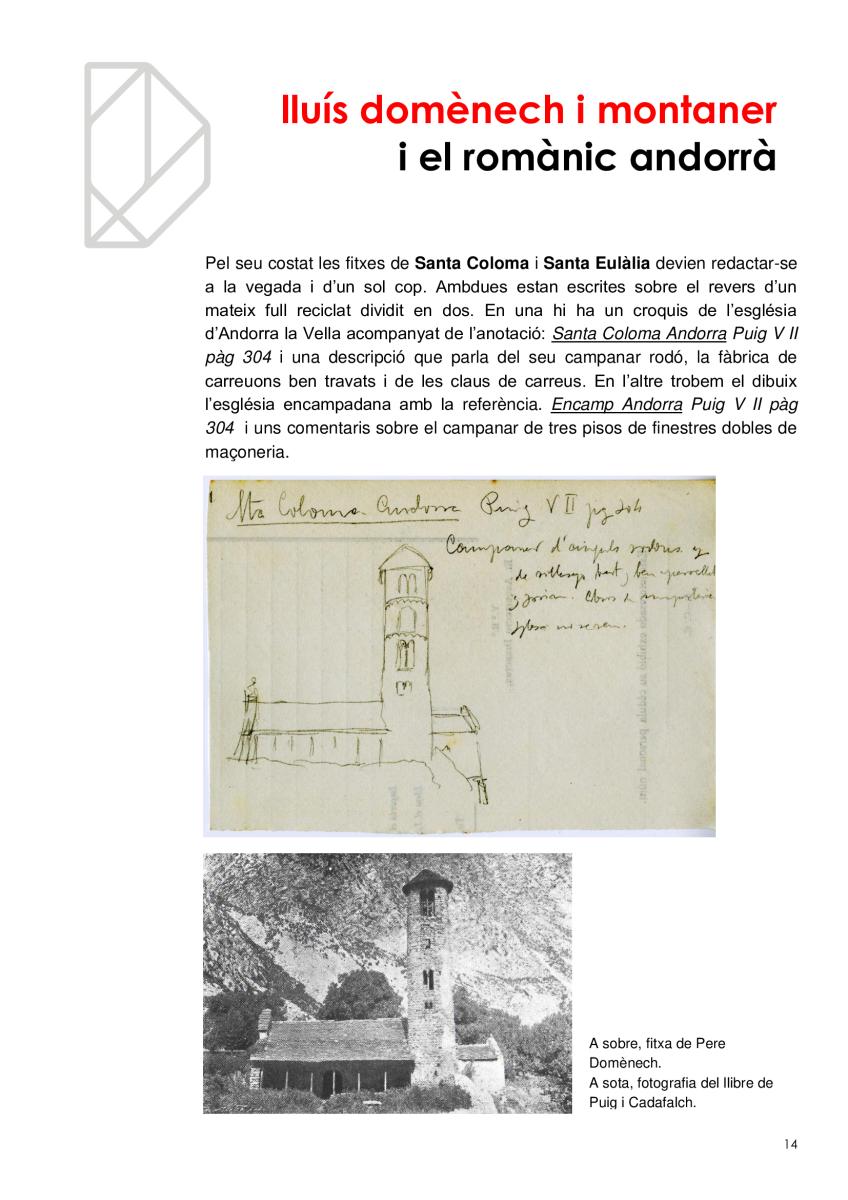 lluís domènech i montaner
i el romànic andorrà
Pel seu costat les fitxes de Santa Coloma i Santa Eulàlia devien redactar-se
a la vegada i d’un sol cop. Ambdues estan escrites sobre el revers d’un
mateix full reciclat dividit en dos. En una hi ha un croquis de l’església
d’Andorra la Vella acompanyat de l’anotació: Santa Coloma Andorra Puig V II
pàg 304 i una descripció que parla del seu campanar rodó, la fàbrica de
carreuons ben travats i de les claus de carreus. En l’altre trobem el dibuix
l’església encampadana amb la referència. Encamp Andorra Puig V II pàg
304 i uns comentaris sobre el campanar de tres pisos de finestres dobles de
maçoneria.
Sta Coloma Andorra Puig V II pg 304
Campanar d'
de ben
A sobre, fitxa de Pere
Domènech.
A sota, fotografia del llibre de
Puig i Cadafalch.
14